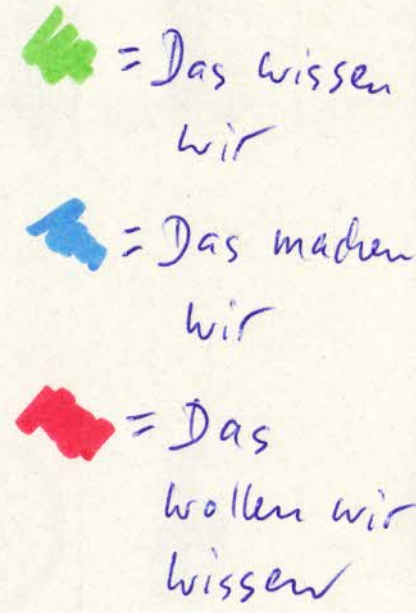 = Das wissen
wir
= Das machen
wir
= Das
wollen wir
wissen